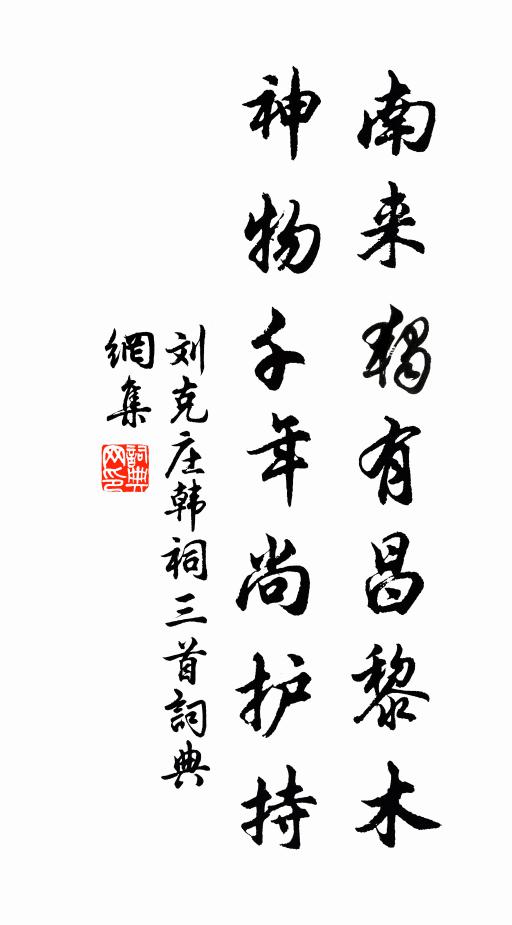 南来独有昌黎木
神物千年尚护持
刘克庄韩祠三首詞典
網集
詞典网印